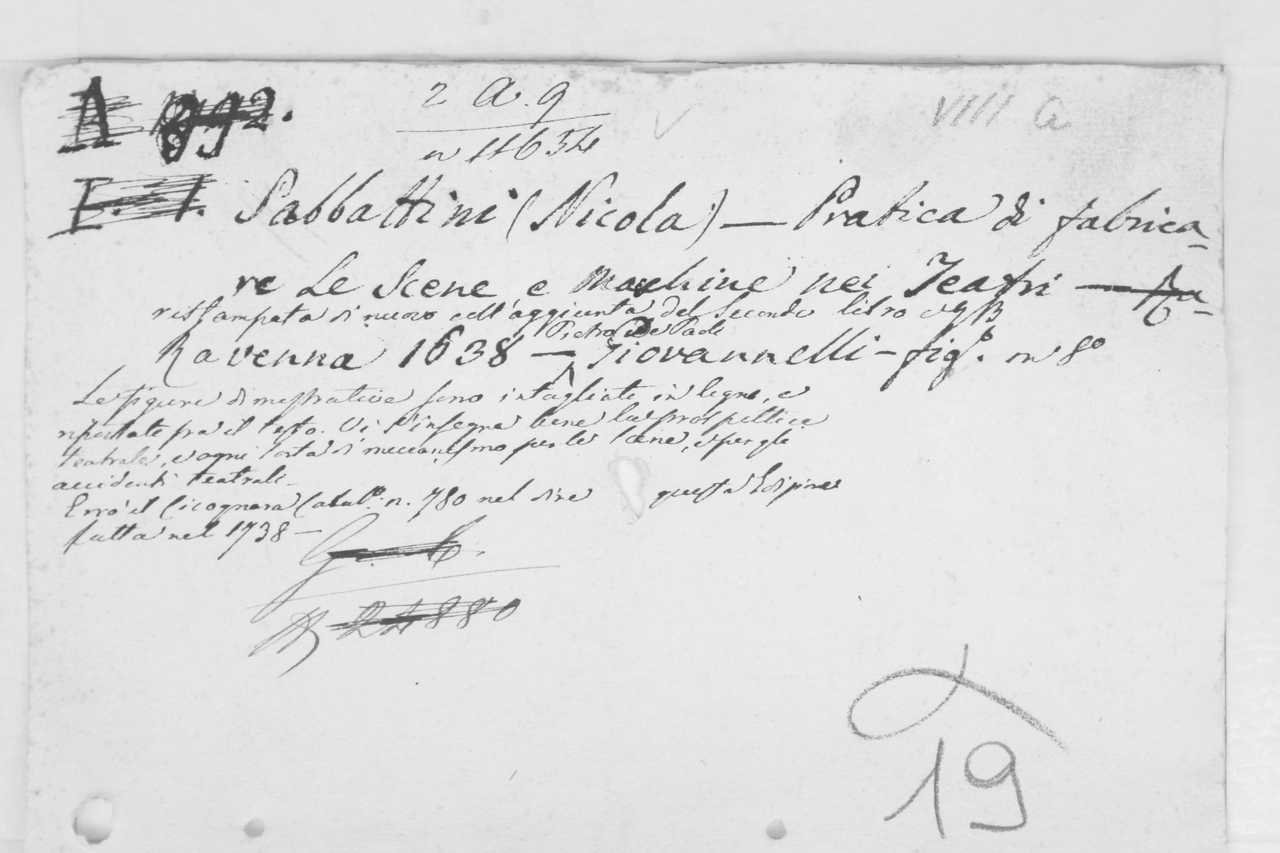 2 A. 9
VIIII a
n 11634
Sabbattini (Nicola) — Pratica di fabrica-
re Le Scene e Machine nei Teatri — Ra-
ristampata di nuovo coll'aggiunta del Secondo libro
Pietro de Paoli
Ravenna 1638 — Giovannelli – fig.º in 8º
Le figure dimostrative sono intagliate in legno, e
riportate fra il testo. Vi s'insegna bene la prospettica
teatrale, e ogni sorta di meccanismo per le scene, e per gli
accidenti teatrali –
Errò il Cicognara Catal. n. 780 nel dire questa Edizione
fatta nel 1738 —
24880
19